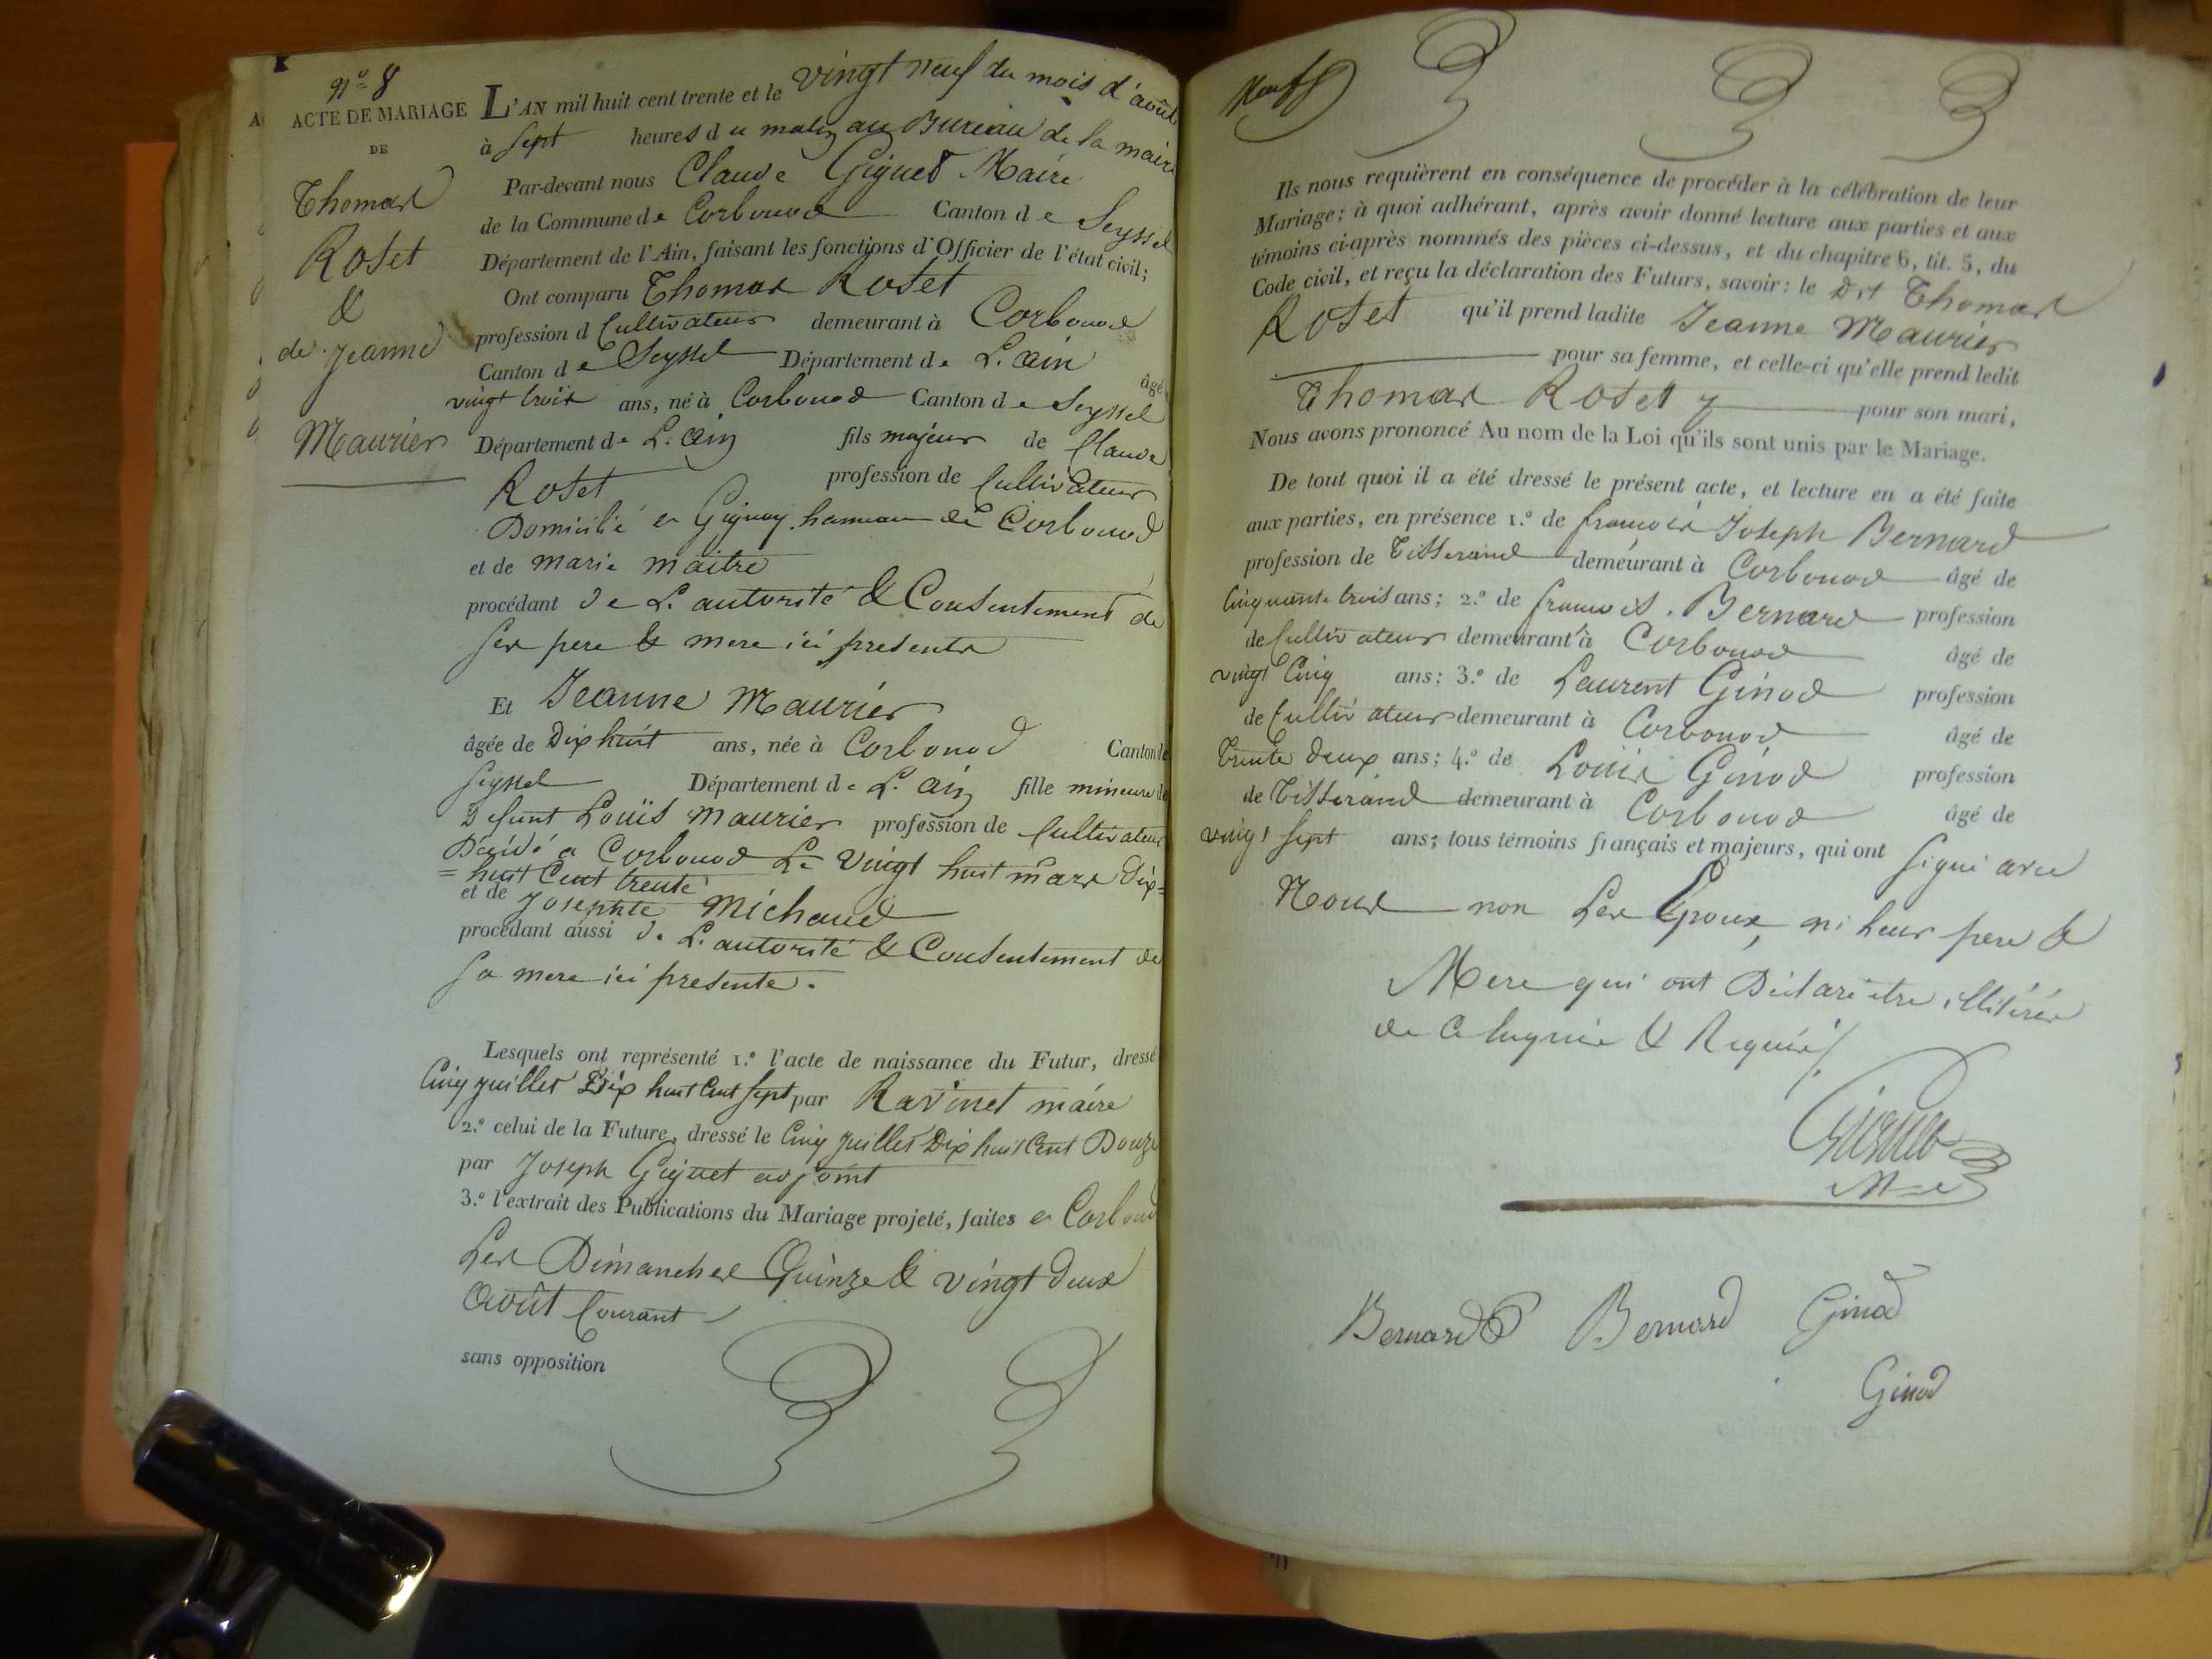 N.º 8
ACTE DE MARIAGE
DE
Thomas
Roset
&
de Jeanne
Maurier
L'AN mil huit cent trente et le vingt neuf du mois d'août
à sept heures du matin au Bureau de la mairie
Par-devant nous Claude Giguet Maire
de la Commune de Corbonod Canton de Seyssel
Département de l'Ain, faisant les fonctions d'Officier de l'état civil;
Ont comparu Thomas Roset
profession d Cultivateur demeurant à Corbonod
Canton de Seyssel Département de L'ain âgé
vingt trois ans, né à Corbonod Canton de Seyssel
Département de L'ain fils majeur de Claude
Roset profession de Cultivateur
Domicilié a Gignay hameau de Corbonod
et de marie maitre
procédant de L'autorité & Consentement de
ses pere & mere ici presents
Et Jeanne Maurier
âgée de Dix huit ans, née à Corbonod Canton de
Seyssel Département de L'ain fille mineure de
Defunt Louis Maurier profession de Cultivateur
Décédé a Corbonod Le vingt huit mars dix=
=huit Cent trente
et de Josephte Michaud
procédant aussi de L'autorité & Consentement de
sa mere ici presente.
Lesquels ont représenté 1.º l'acte de naissance du Futur, dressé
Cinq juillet Dix huit Cent sept par Ravinet maire
2.º celui de la Future, dressé le Cinq juillet Dix huit Cent Douze
par Joseph Giguet adjoint
3.º l'extrait des Publications du Mariage projeté, faites a Corbonod
Les Dimanches Quinze & vingt deux
Août Courant
sans opposition
neuf
Ils nous requièrent en conséquence de procéder à la célébration de leur
Mariage; à quoi adhérant, après avoir donné lecture aux parties et aux
témoins ci-après nommés des pièces ci-dessus, et du chapitre 6, tit. 5, du
Code civil, et reçu la déclaration des Futurs, savoir: le Dit Thomas
Roset qu'il prend ladite Jeanne Maurier
pour sa femme, et celle-ci qu'elle prend ledit
Thomas Roset pour son mari,
Nous avons prononcé Au nom de la Loi qu'ils sont unis par le Mariage.
De tout quoi il a été dressé le présent acte, et lecture en a été faite
aux parties, en présence 1.º de francois Joseph Bernard
profession de Tisserand demeurant à Corbonod âgé de
Cinquante trois ans; 2.º de francois Bernard profession
de Cultivateur demeurant à Corbonod âgé de
vingt Cinq ans; 3.º de Laurent Ginod profession
de Cultivateur demeurant à Corbonod âgé de
Trente deux ans; 4.º de Louis Ginod profession
de Tisserand demeurant à Corbonod âgé de
vingt sept ans; tous témoins français et majeurs, qui ont signé avec
Nous non Les Epoux, ni Leur pere &
Mere qui ont Déclaré être illitérés
de Ce Enquis & Requis/.
Giguet
M=e
Bernard Bernard Ginod
Ginod